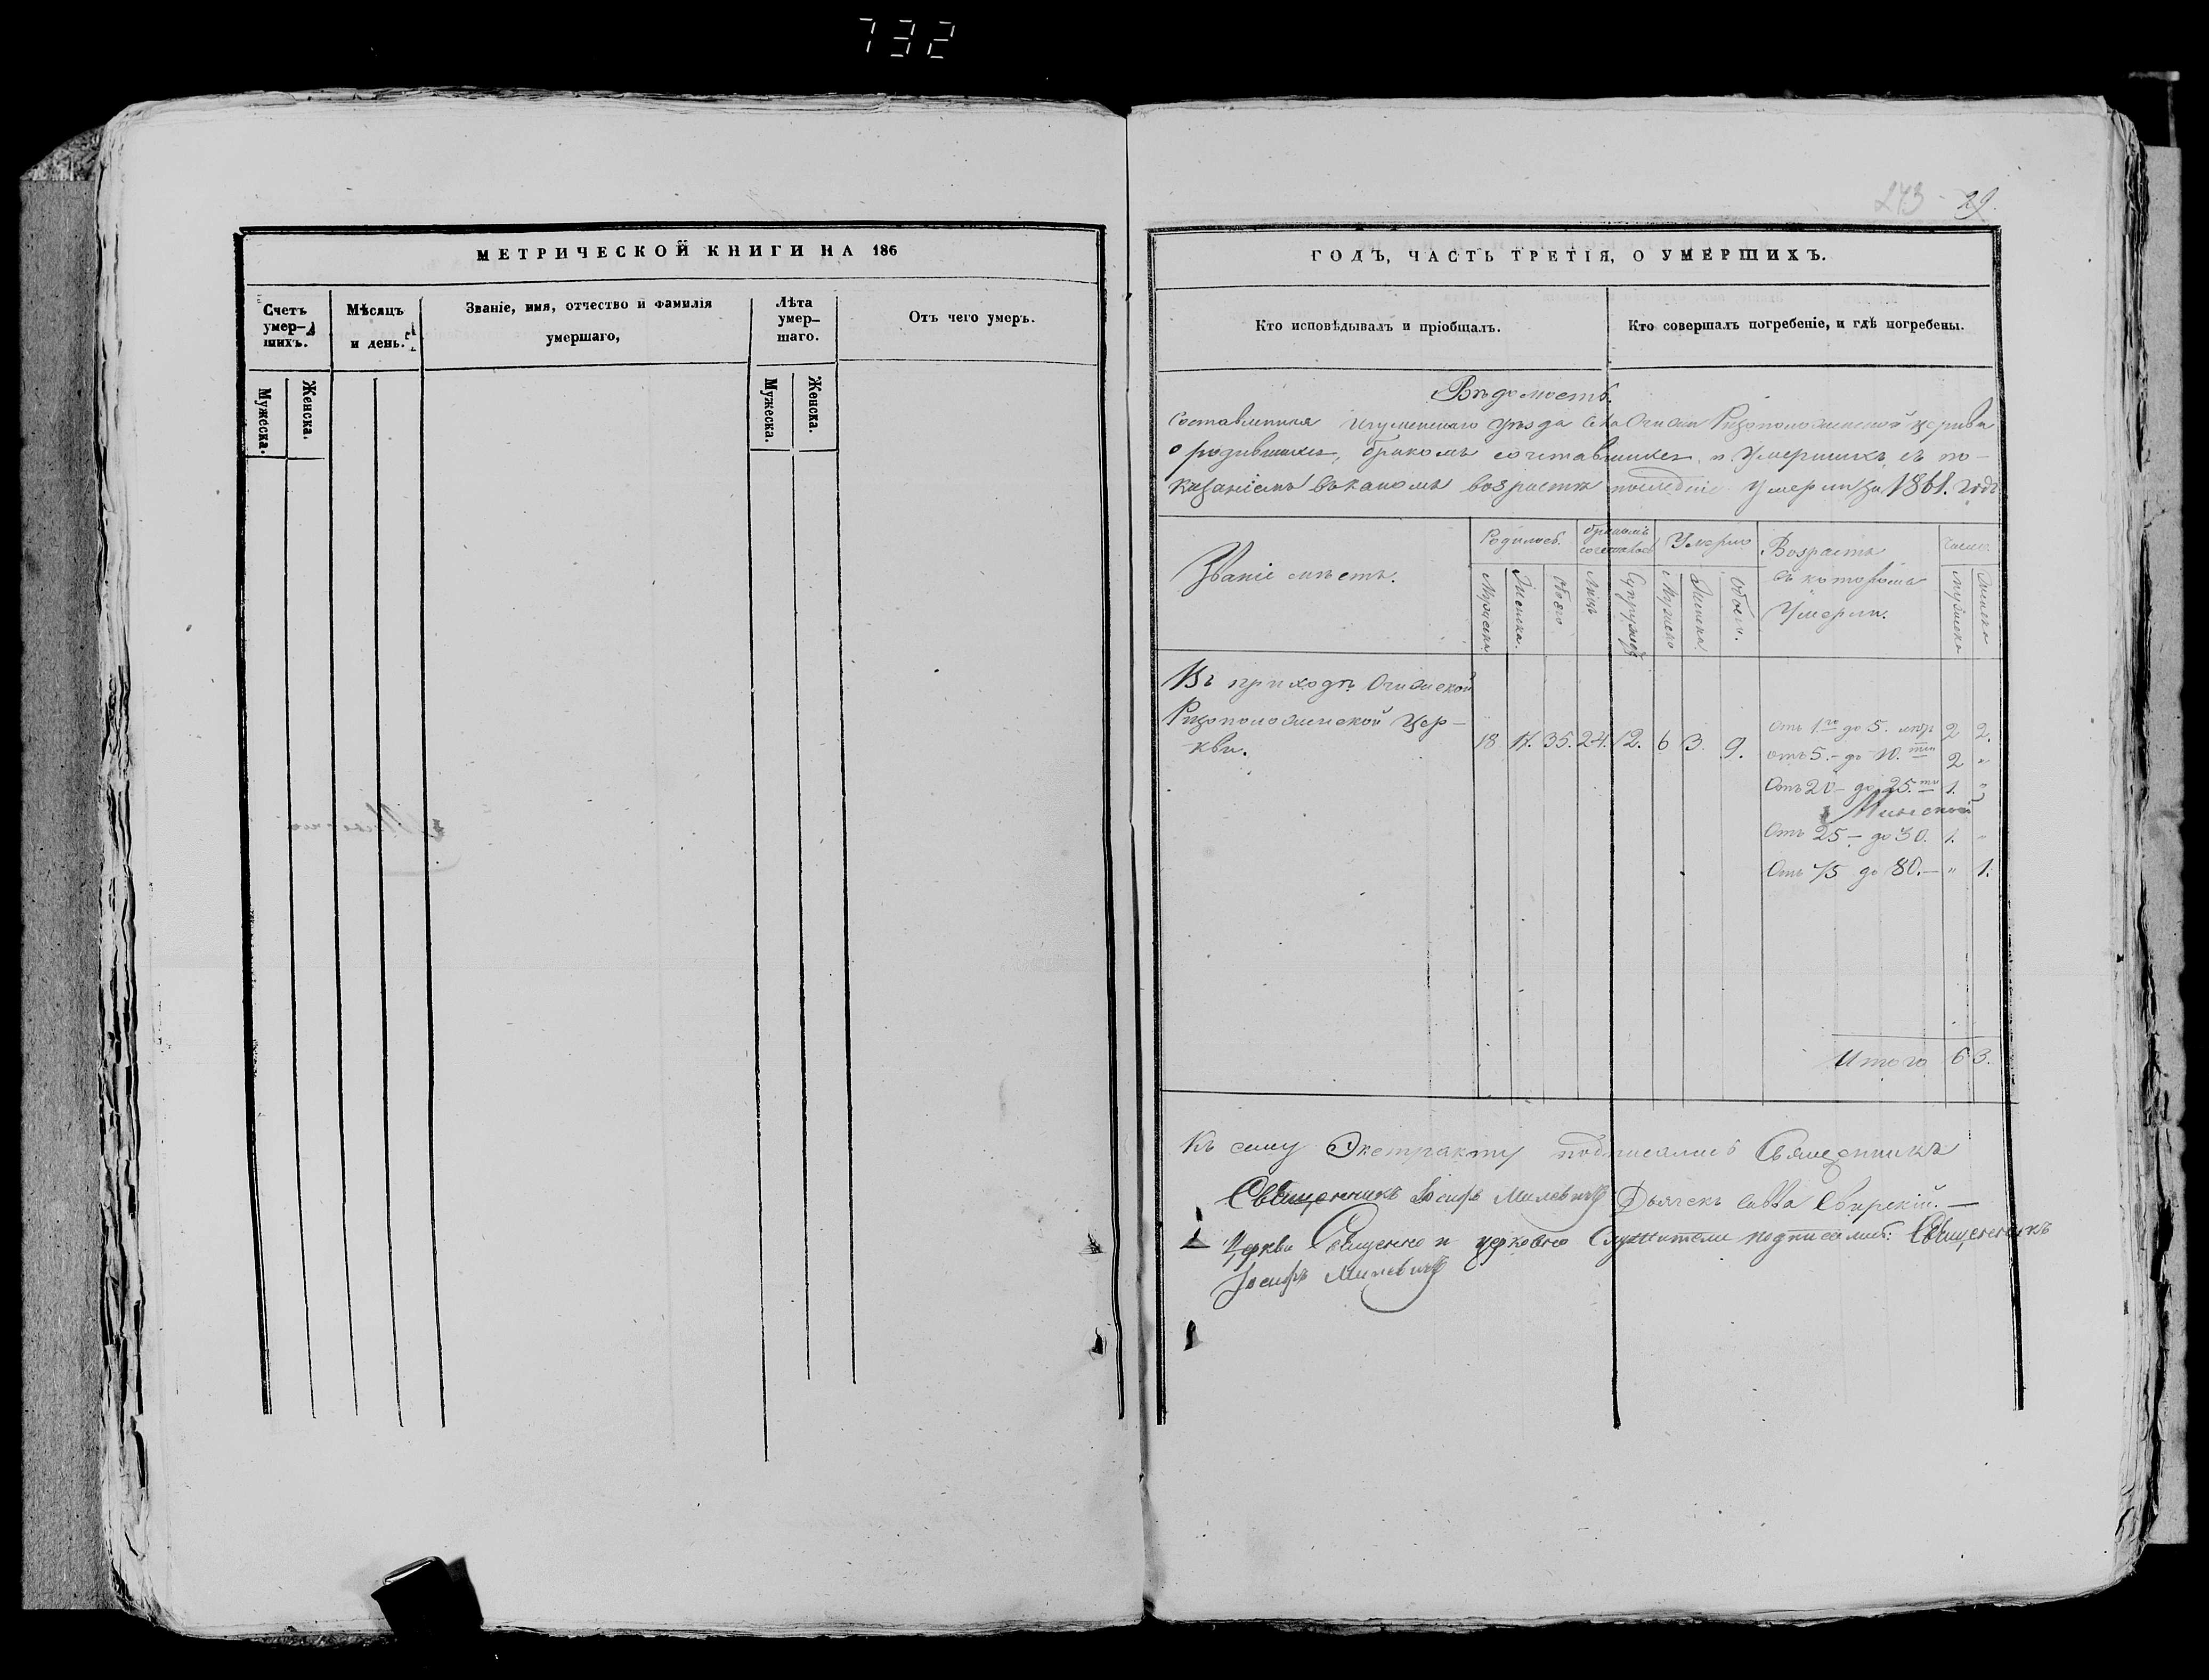 732
243 29.
МЕТРИЧЕСКОЙ КНИГИ НА 186
Счетъ умер-шихъ.
Мужеска.
Женска.
Мѣсяцъ и день.
Званіе, имя, отчество и фамилія
умершаго,
Лѣта умер-шаго.
Мужеска.
Женска.
Отъ чего умеръ.
ГОДЪ, ЧАСТЬ ТРЕТІЯ, О УМЕРШИХЪ.
Кто исповѣдывалъ и пріобщалъ.
Кто совершалъ погребеніе, и гдѣ погребены.
Вѣдомость.
Составленная Игуменскаго Уѣзда Села Ризоположенской церкви
о родившихся, бракомъ сочетавшихся и Умершихъ съ по-
казаніемъ въ какомъ возрастѣ последніе Умерли за 1861. годъ
Званіе мѣстъ.
Родилось.
Мужеска
Женска.
Обоего
бракомъ сочеталось
Лицъ
Супружес
Умерло
Мужеска
Женска.
Обоего.
Возрастъ
въ которомъ
Умерли.
Число.
мужеска
Женска
Въ приходѣ
Ризоположенской Цер-
кви.
18 17. 35. 24. 12. 6 3. 9.
Отъ 1го до 5. лѣтъ 2 2.
отъ 5.- до 10.ти 2 "
Отъ 20- до 25.ти 1. "
Минской
Отъ 25.- до 30. 1. "
Отъ 75 до 80.- " 1.
Итого 6 3.
Къ сему Экстракту подписались Священникъ
Священникъ Іосифъ Милевичъ Дьячекъ Савва Свирскій.-
Церкви Священно и церковно Служители подписались: Священникъ
Іосифъ Милевичъ